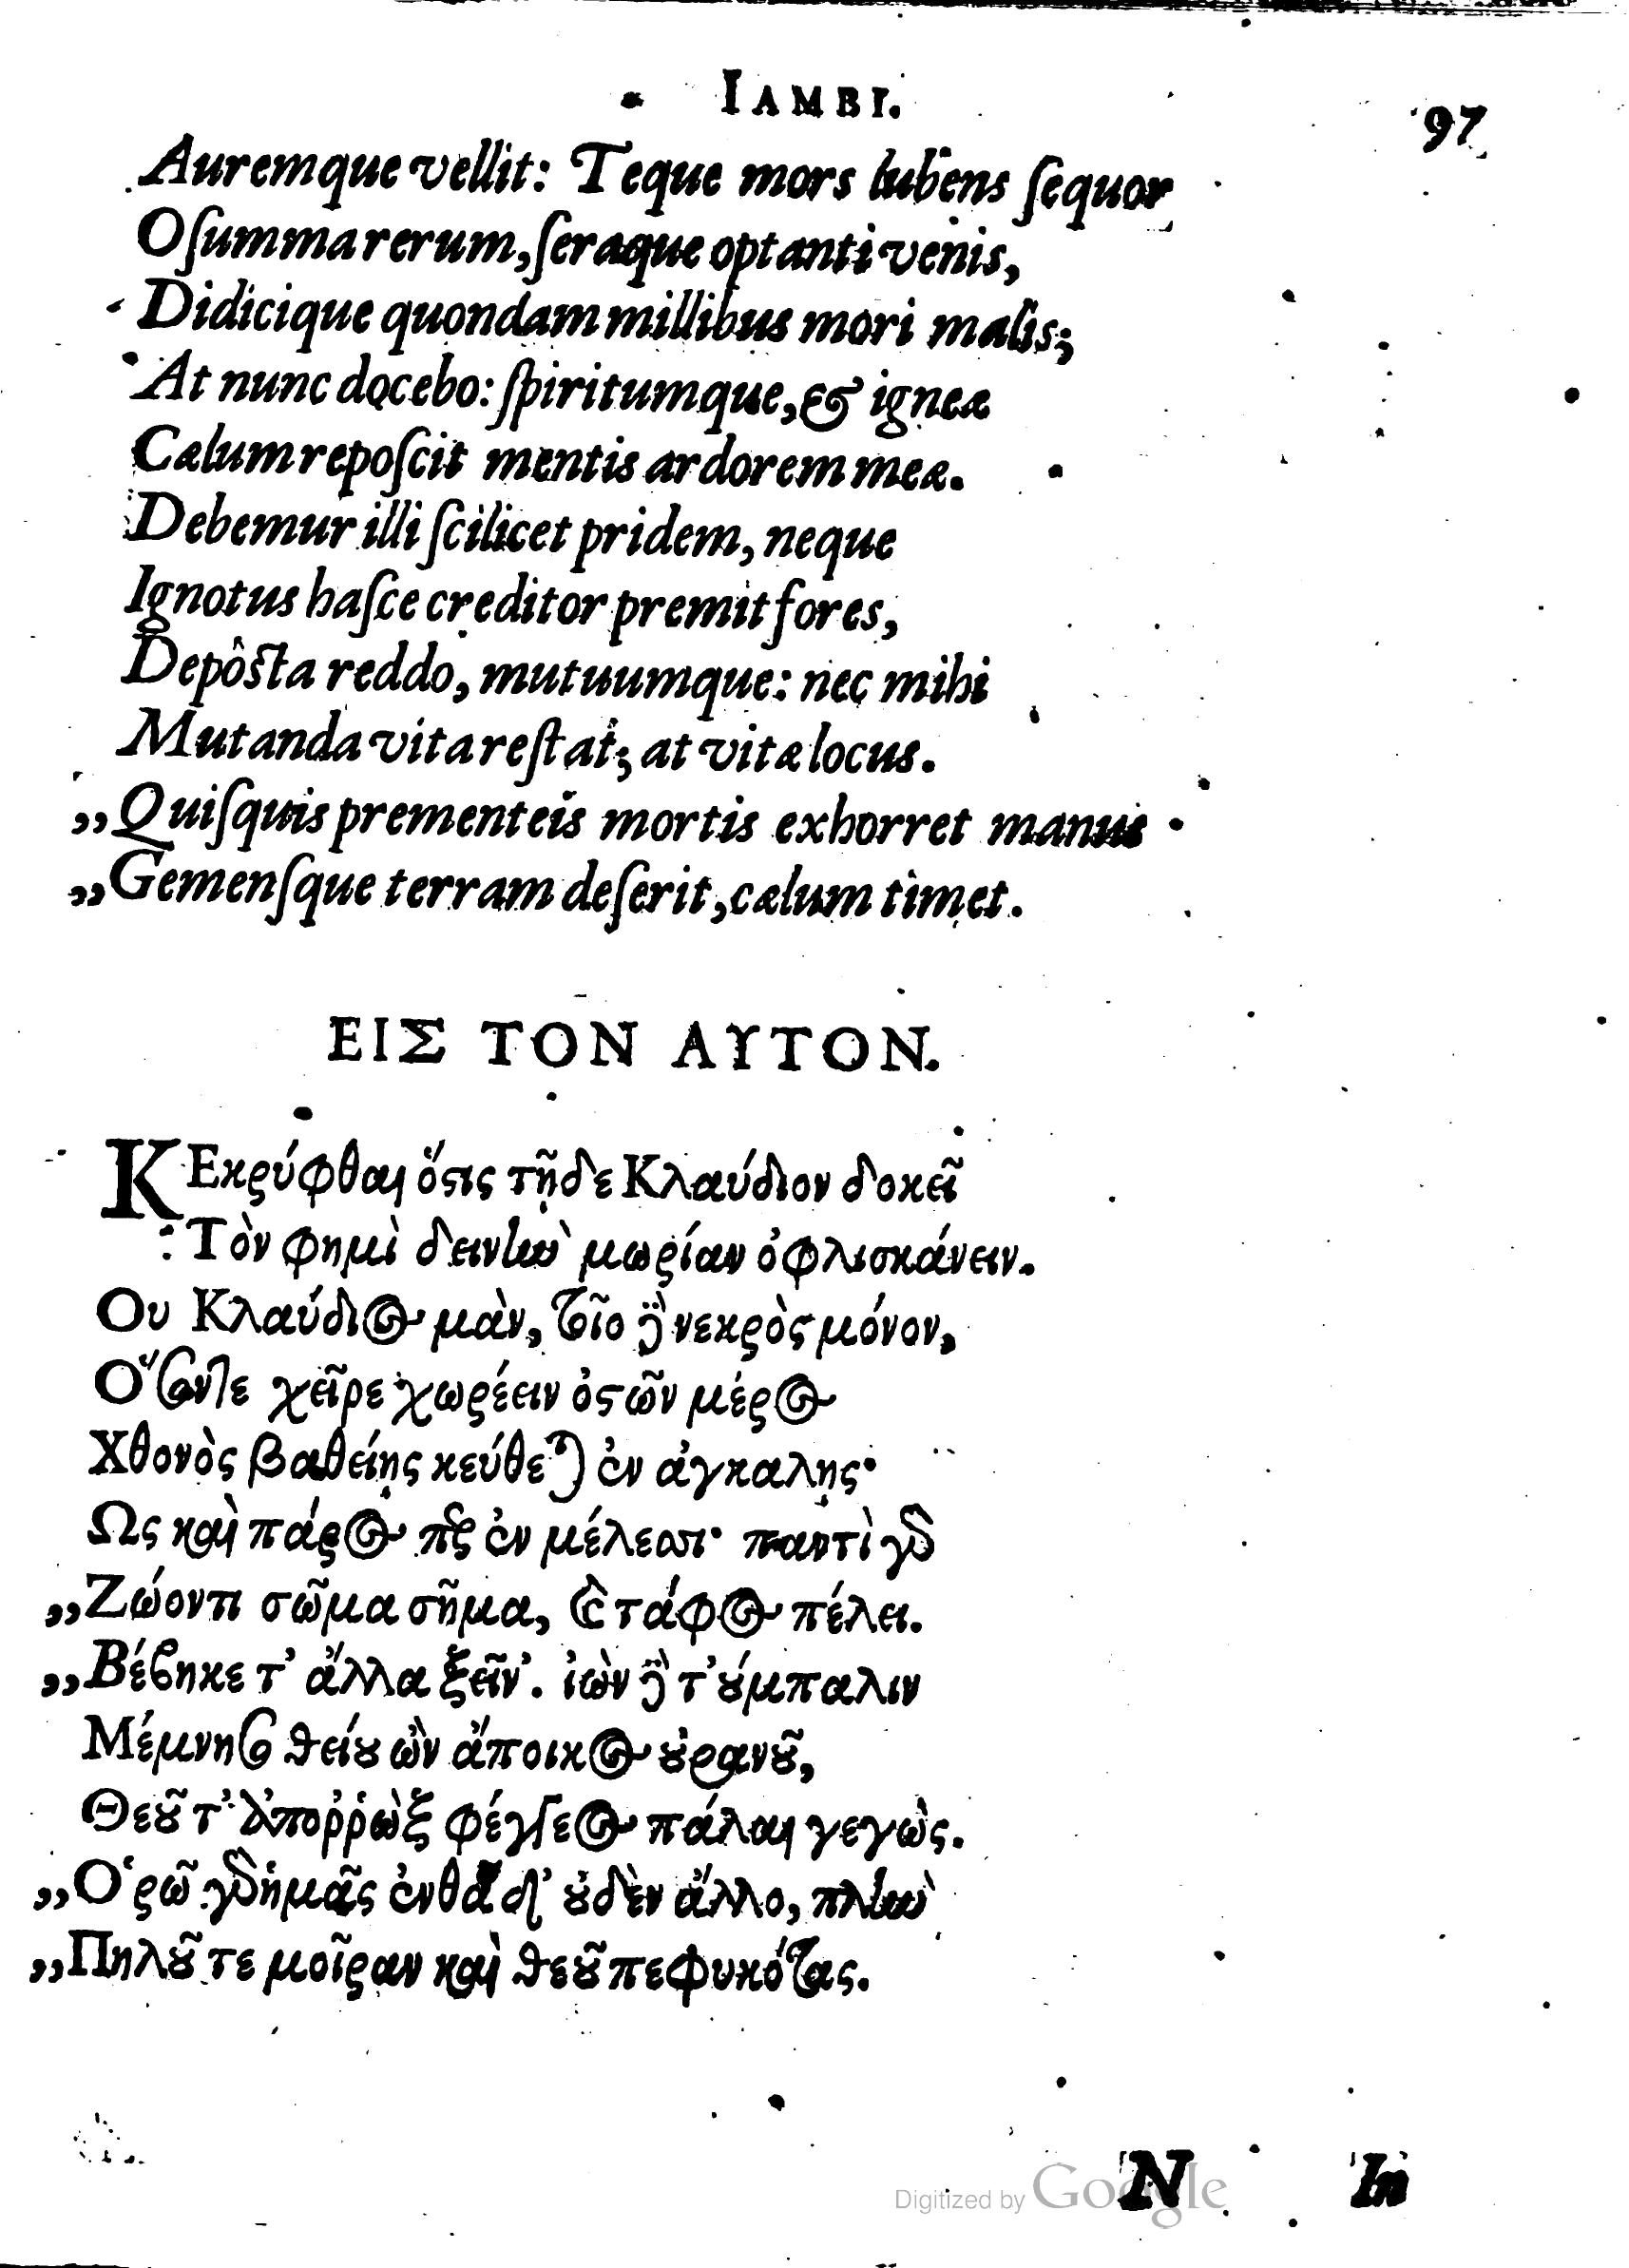 IAMBI. 97
Auremque vellit: Teque mors lubens ſequor
O ſumma rerum, ſeraque optanti venis,
Didicique quondam millibus mori malis;
At nunc docebo: ſpiritumque, & igneæ
Cælum repoſcit mentis ardorem meæ.
Debemur illi ſcilicet pridem, neque
Ignotus haſce creditor premit fores,
Depôſta reddo, mutuumque: nec mihi
Mutanda vita reſtat; at vitæ locus.
„Quiſquis prementeis mortis exhorret manus
„Gemenſque terram deſerit, cælum timet.
ΕΙΣ ΤΟΝ ΑΥΤΟΝ.
ΚΕκρύφθαι ὅςις τῇδε Κλαύδιον δοκεῖ
Τὸν φημὶ δεινὴν μωρίαν ὀφλισκάνειν.
Ου Κλαύδιος μὰν, τῖο δὲ νεκρὸς μόνον,
Ο῞σοντε χεῖρε χωρέειν ὀςῶν μέρος
Χθονὸς βαθείης κεύθεται ἐν ἀγκαλῃς·
Ως καὶ πάρος περ ἐν μέλεσι· παντὶ γὰρ
„Ζώοντι σῶμα σῆμα, καὶ τάφος πέλει.
„Βέβηκε τ' ἄλλα ξεῖν'. ἰὼν δὲ τ' ȣ́μπαλιν
Μέμνησο θείȣ ὢν ἄποικος ȣ̓ρανȣ͂,
Θεȣ͂ τ' ἀποῤῥὼξ φέγγεος πάλαι γεγὼς.
„Ο῾ρῶ γὰρ ἡμᾶς ἐνθάδ' ȣ̓δὲν ἄλλο, πλὴν
„Πηλȣ͂ τε μοῖραν καὶ θεȣ͂ πεφυκότας.
N In
Digitized by Google